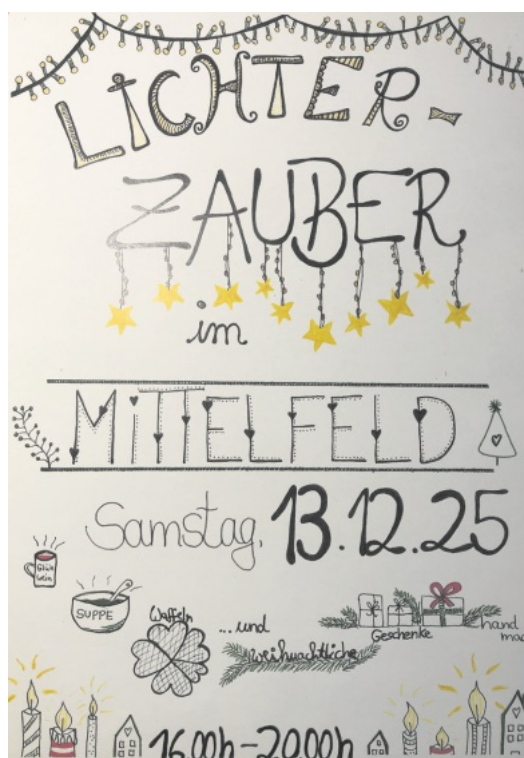 LiCHTER-
ZAUBER
im
MiTTELFELD
Samstag, 13.12.25
Glüh
wein
SUPPE
Waffeln
...und
weihnachtliche
Geschenke
hand
mac
16.00h-20.00h